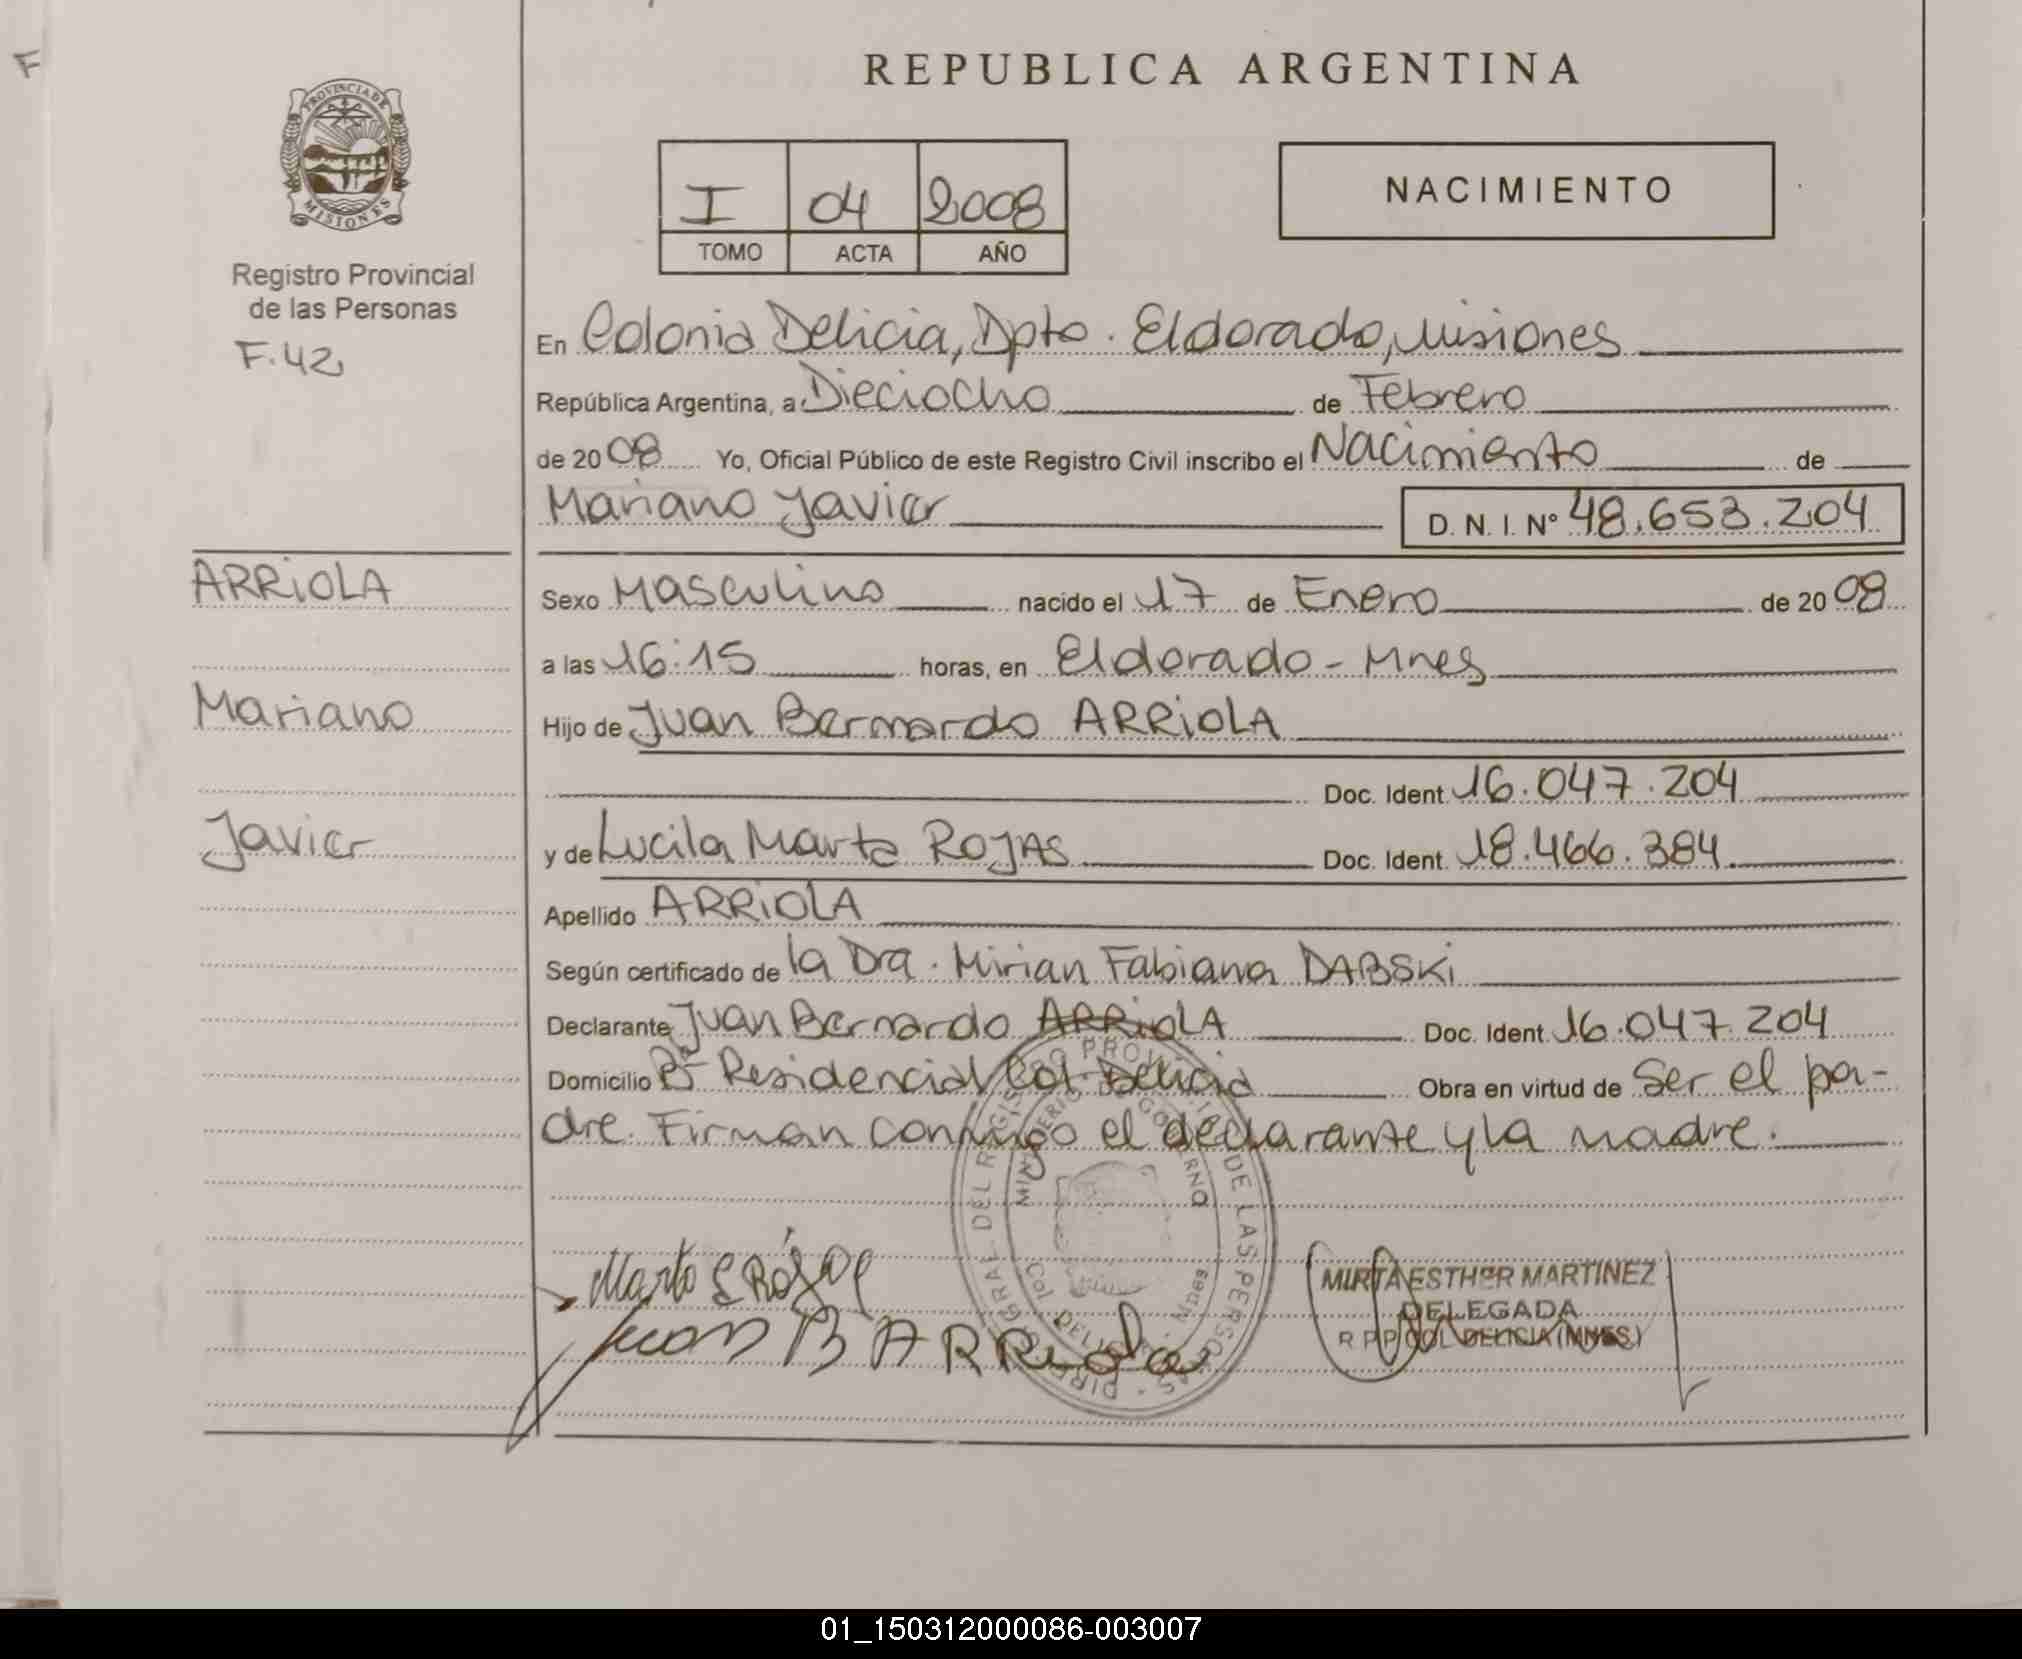 F
REPUBLICA ARGENTINA
PROVINCIA DE
MISIONES
Registro Provincial
de las Personas
F.42
I 04 2008
TOMO ACTA AÑO
NACIMIENTO
En Colonia Delicia, Dpto. Eldorado, Misiones
República Argentina, a Dieciocho de Febrero
de 2008 Yo, Oficial Público de este Registro Civil inscribo el Nacimiento de
Mariano Javier D. N. I. Nº 48.653.204
ARRiOLA
Mariano
Javier
Sexo Masculino nacido el 17 de Enero de 2008
a las 16:15 horas, en Eldorado - Mnes
Hijo de Juan Bernardo ARRiOLA
Doc. Ident. 16.047.204
y de Lucila Marta ROJAS Doc. Ident. 18.466.384
Apellido ARRiOLA
Según certificado de la Dra. Mirian Fabiana DABSKi
Declarante Juan Bernardo ARRiOLA Doc. Ident. 16.047.204
Domicilio Bº Residencial Col. Delicia Obra en virtud de Ser el pa-
dre. Firman conmigo el declarante y la madre.
Juan B ARRiola
MIRTA ESTHER MARTINEZ
DELEGADA
R P P COL DELICIA (MNES.)
01_150312000086-003007